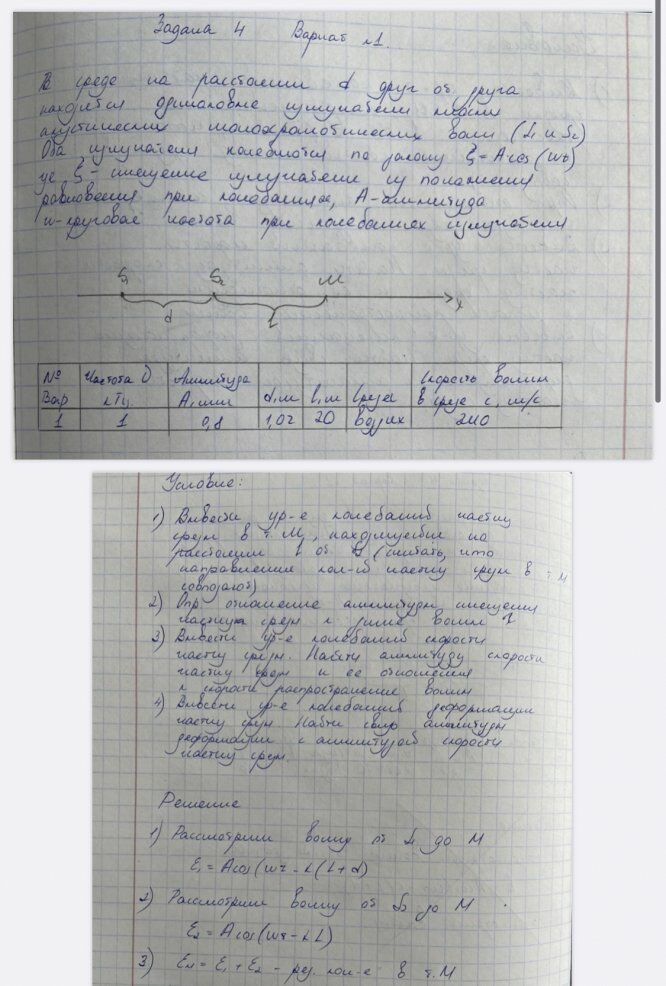 Задача 4 Вариант №1.
В среде на расстоянии d друг от друга
находятся одинаковые излучатели плоских
акустических монохроматических волн (S₁ и S₂)
Оба излучателя колеблются по закону ξ = A cos(wt)
где ξ - смещение излучателей из положения
равновесия при колебаниях, A - амплитуда
w - круговая частота при колебаниях излучателя
S₁ S₂ M
d l x
№ Вар Частота υ кГц Амплитуда A, мм d, м l, м Среда Скорость волны в среде c, м/с
1 1 0,8 1,02 20 воздух 340
Условие:
1) Вывести ур-е колебаний частиц
среды в т. M, находящейся на
расстоянии l от S₂ (считать, что
направления кол-ий частиц среды в т. M
совпадают)
2) Опр. отношение амплитуды смещения
частиц среды к длине волны λ
3) Вывести ур-е колебаний скорости
частиц среды. Найти амплитуду скорости
частиц среды и ее отношения
к скорости распространения волны
4) Вывести ур-е колебаний деформации
частиц среды Найти связь амплитуды
деформации с амплитудой скорости
частиц среды.
Решение
1) Рассмотрим волну от S₁ до M
ξ₁ = A cos(wt - k(L + d)
2) Рассмотрим волну от S₂ до M
ξ₂ = A cos(wt - kL)
3) ξм = ξ₁ + ξ₂ - рез. кол-е в т. M